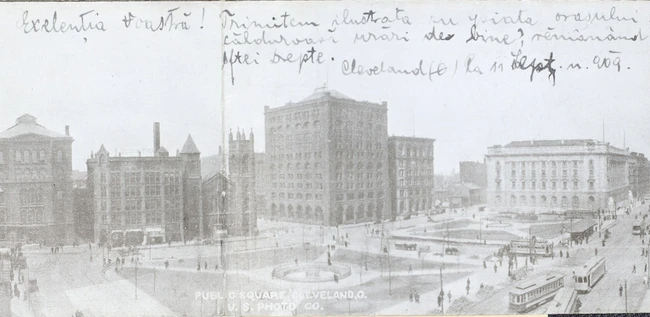 Exelenția Voastră! Trimitem ilustrata cu piața orașului
călduroasă urări de bine, rămânând
Cleveland (O) la 11 Sept. n. 909.
PUBLIC SQUARE CLEVELAND, O.
U. S. PHOTO CO.